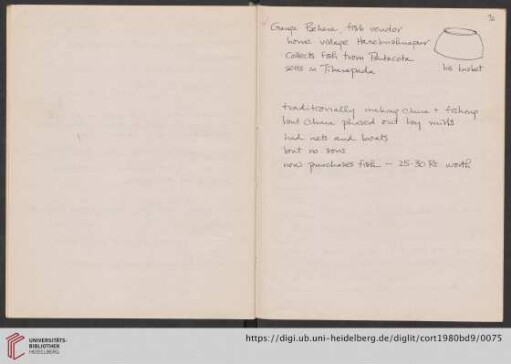 36
Ganga Behera, fish vendor
home village Harekrishnapur
Collects fish from Pentacota
sells in Tikarapada
his basket
traditionally making chura + fishing
but chura phased out by mills
had nets and boats
but no sons
now purchases fish — 25-30 Rs worth
UNIVERSITÄTS-
BIBLIOTHEK
HEIDELBERG
https://digi.ub.uni-heidelberg.de/diglit/cort1980bd9/0075